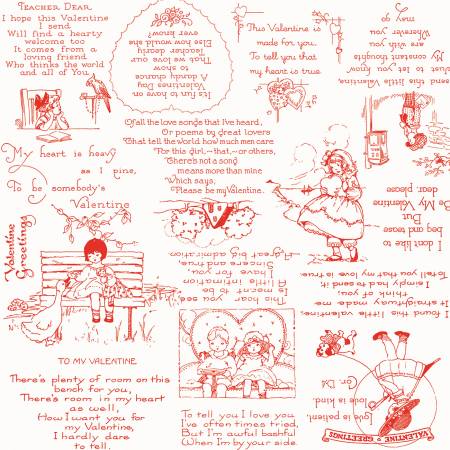 TEACHER DEAR,
I hope this Valentine
I send
Will find a hearty
welcome too
It comes from a
loving friend
Who thinks the world
and all of You.
It's fun to have on
Valentines Day
A dandy chance
to say
That we love our
Teacher dearly
Else how should she
ever know?
This Valentine is
made for you.
To tell you that
my heart is true.
I send this little Valentine,
Just to let you know
My constant thoughts
are with you
Wherever you
may go
Of all the love songs that I've heard,
Or poems by great lovers
That tell the world how much men care
For this girl,—that,—or others,
There's not a song
means more than mine
Which says,
Please be my Valentine.
My heart is heavy
as I pine,
To be somebody's
Valentine
I don't like to
beg and tease
But
Be My Valentine
dear, please
Valentine
Greetings
This heart you see
is meant to be
A little intimation
I have for you
Sincere and true
A great big admiration.
I found this little valentine,
It straightway made me
think of you.
I simply had to send it
Tell you that my love is true.
TO MY VALENTINE
There's plenty of room on this
bench for you,
There's room in my heart
as well,
How I want you for
my Valentine,
I hardly dare
to tell.
To tell you I love you
I've often times tried,
But I'm awful bashful
When I'm by your side.
Love is patient,
love is kind.
VALENTINE GREETINGS